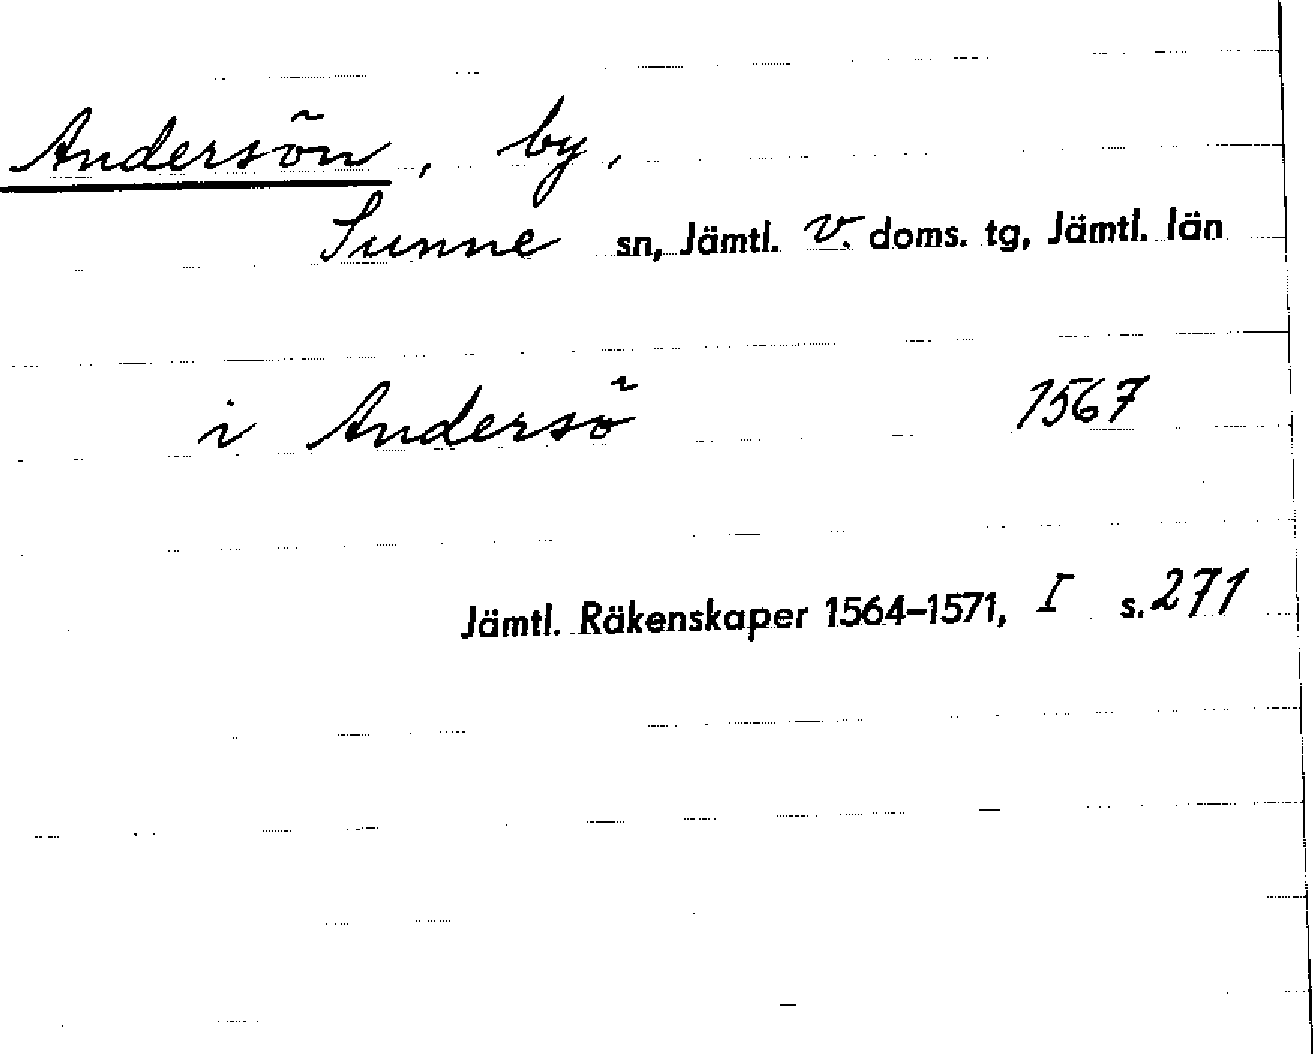 Andersön, by,
Sunne sn, Jämtl. V. doms. tg, Jämtl. län
i Andersö 1567
Jämtl. Räkenskaper 1564–1571, I s. 271